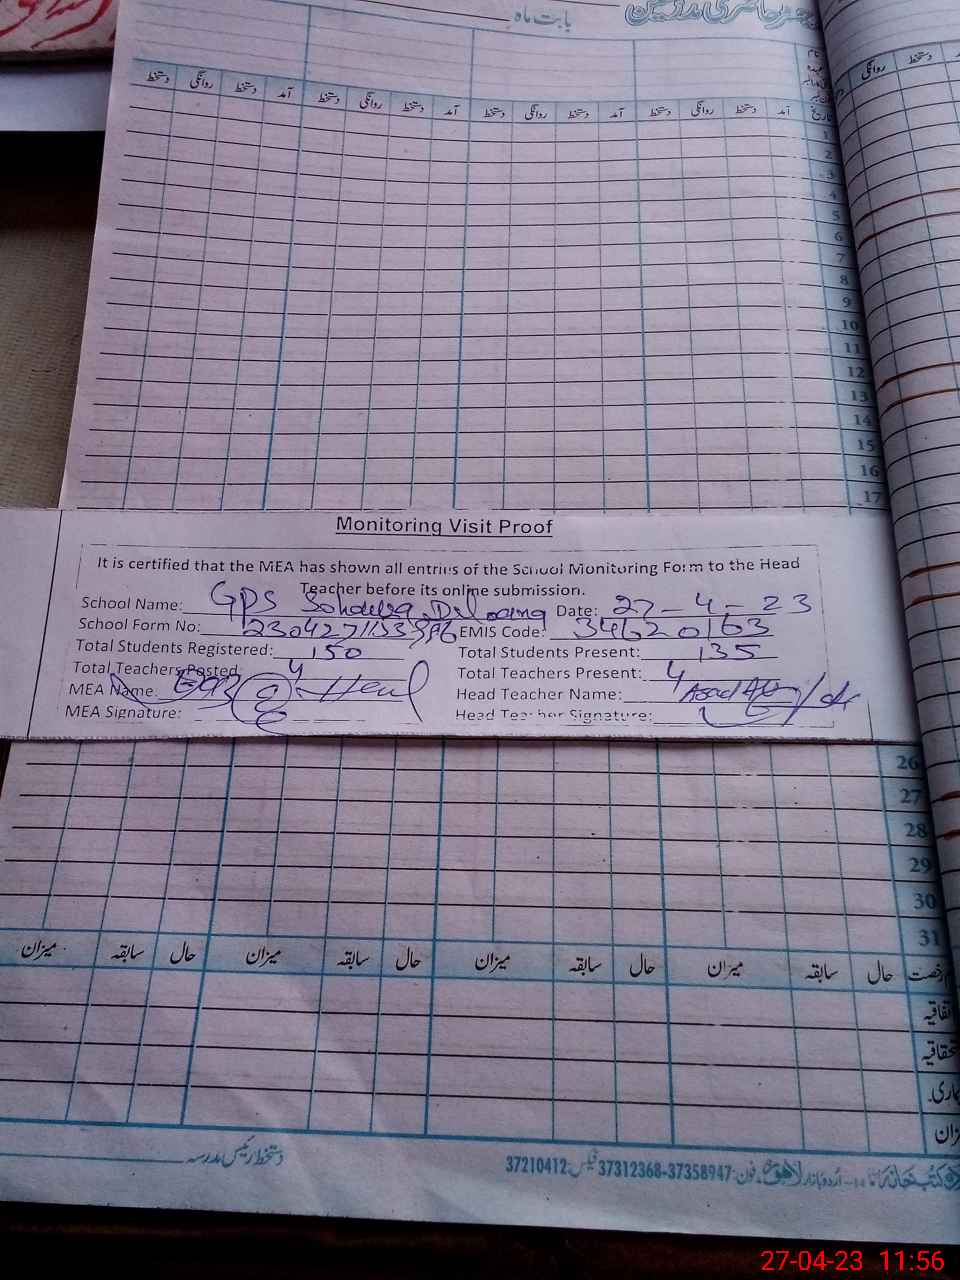 بابت ماہ
آمد دستخط روانگی دستخط آمد دستخط روانگی دستخط آمد دستخط روانگی دستخط آمد دستخط روانگی دستخط
دستخط روانگی
تاریخ
1
2
3
4
5
6
7
8
9
10
11
12
13
14
15
16
17
Monitoring Visit Proof
It is certified that the MEA has shown all entries of the School Monitoring Form to the Head
Teacher before its online submission.
School Name: GPS Date: 27-4-23
School Form No: EMIS Code: 34620163
Total Students Registered: 150 Total Students Present: 135
Total Teachers Posted: 4 Total Teachers Present: 4
MEA Name: Head Teacher Name:
MEA Signature: Head Teacher Signature:
26
27
28
29
30
31
رخصت حال سابقہ میزان حال سابقہ میزان حال سابقہ میزان حال سابقہ میزان
میزان
دستخط رئیس مدرسہ
کتب خانہ اردو بازار لاہور فون: 37312368-37358947 فیکس: 37210412
27-04-23 11:56